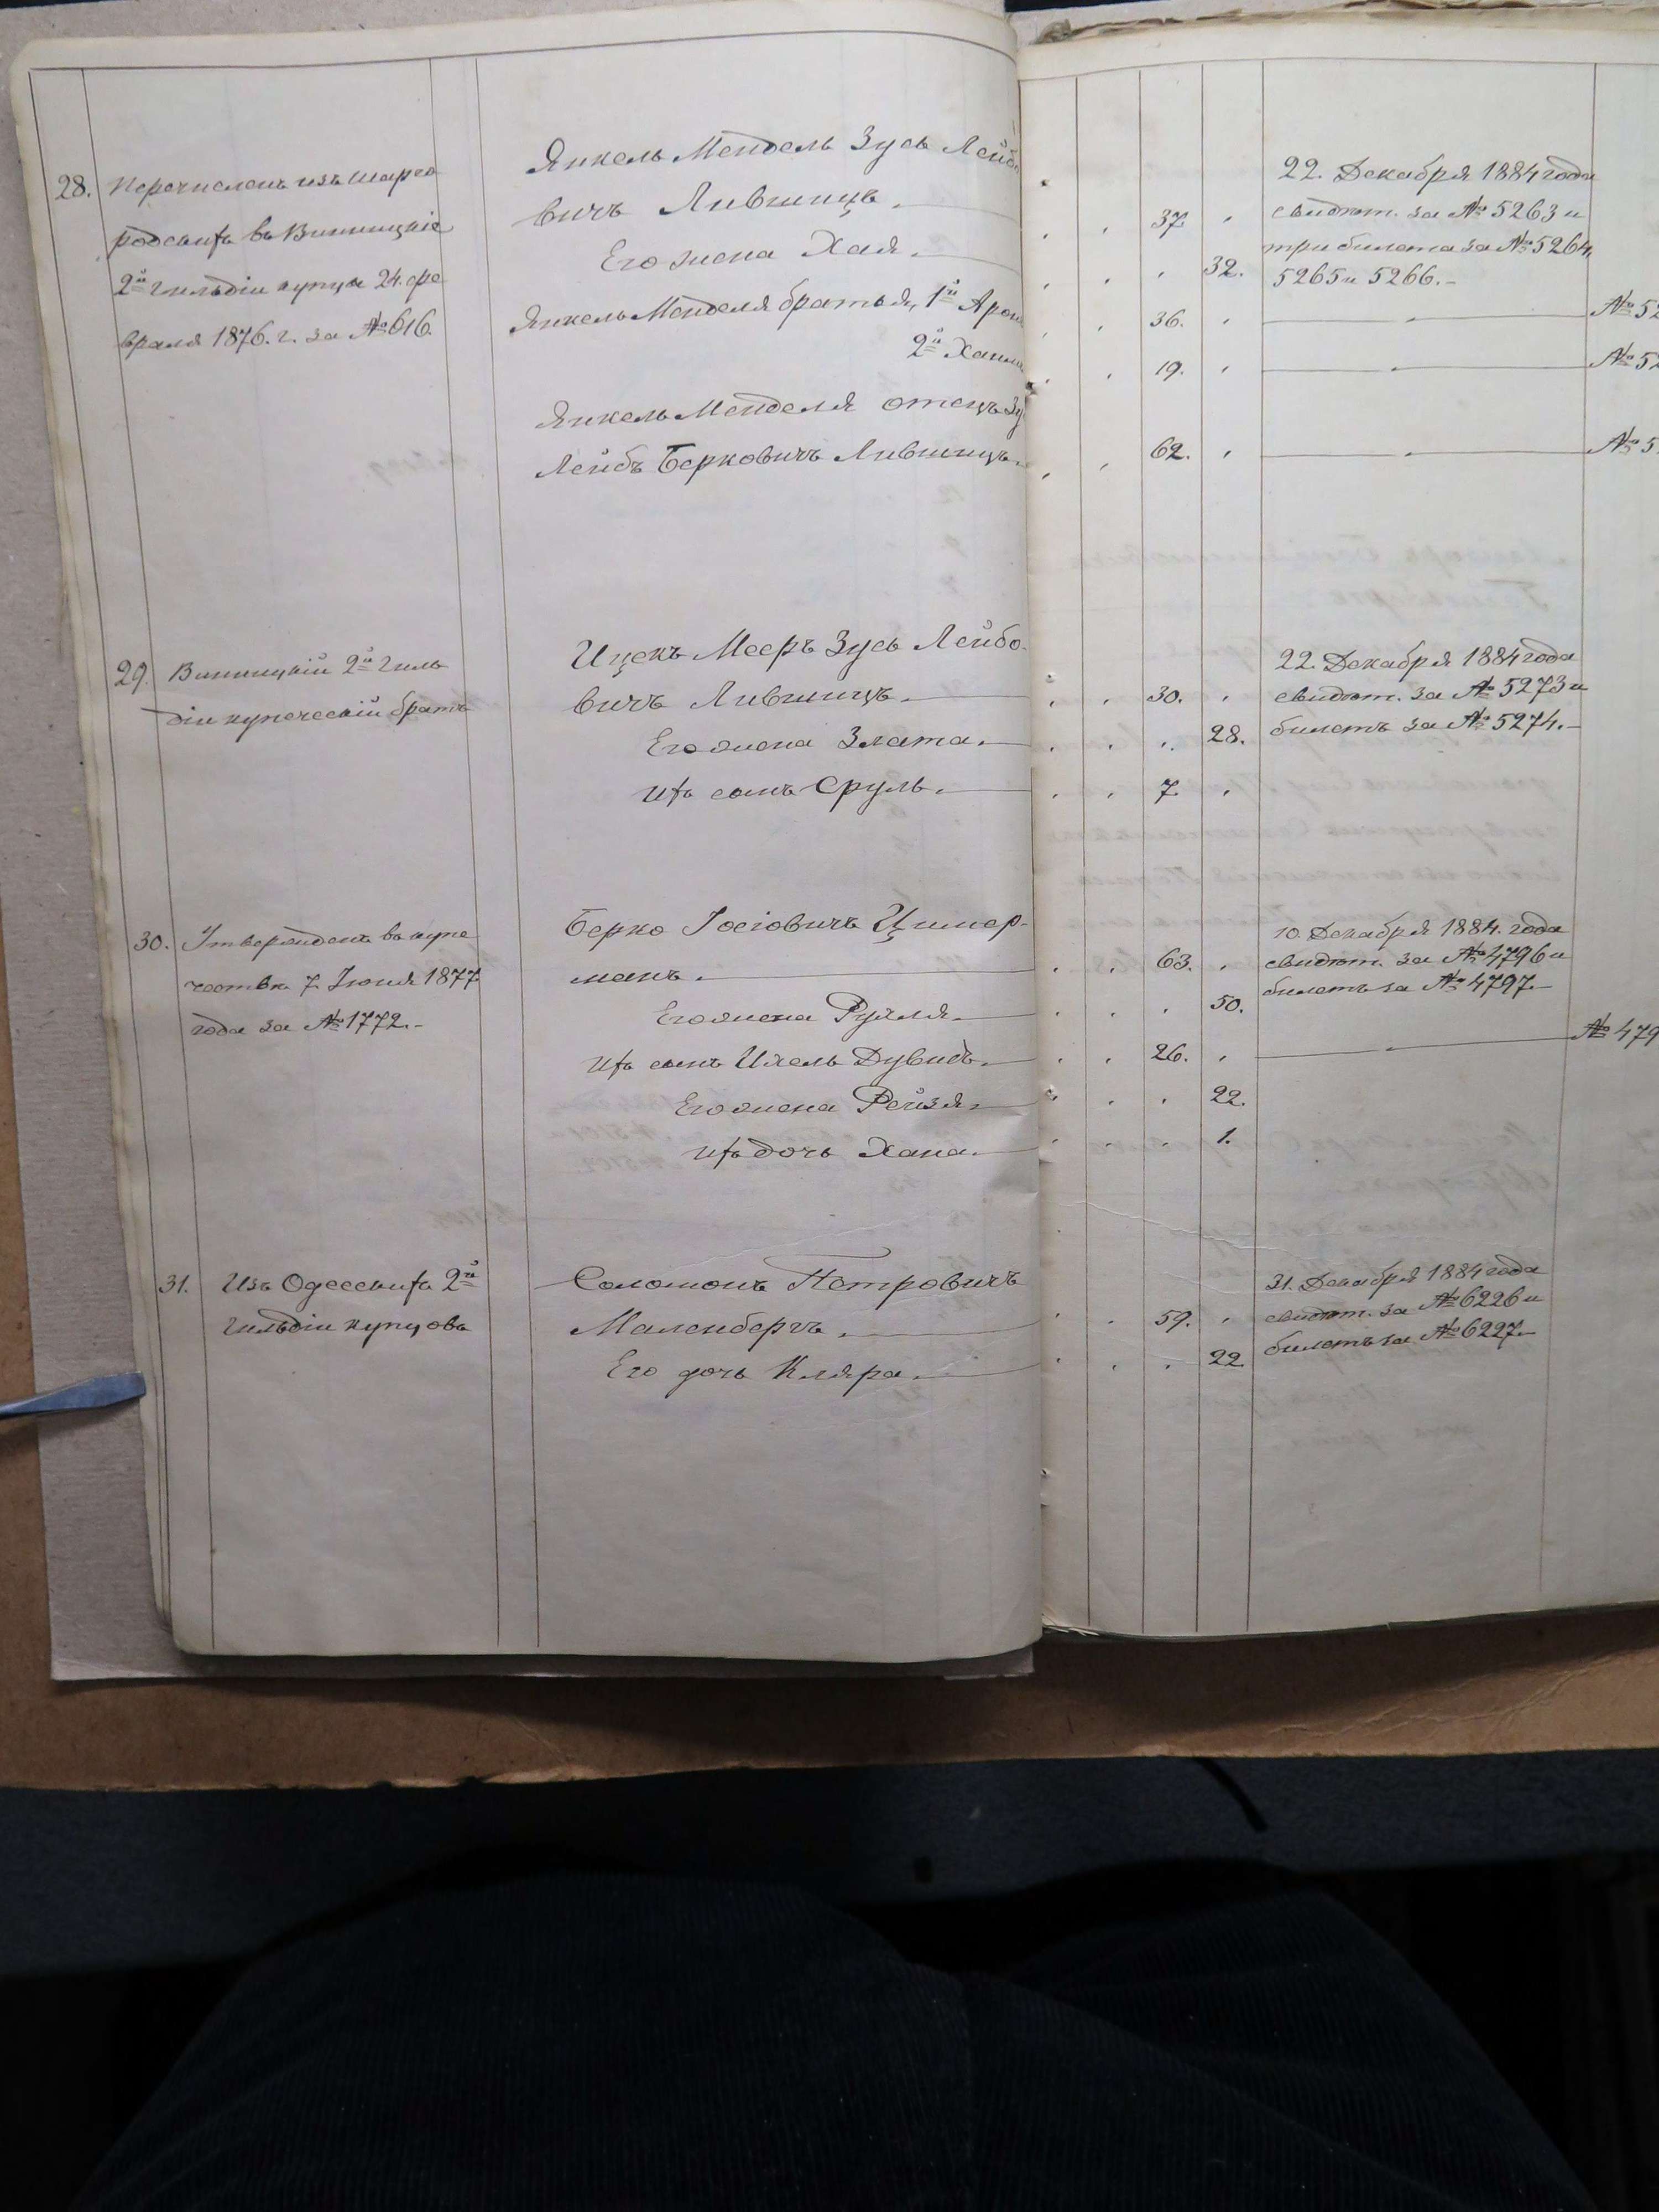 28. Перечисленъ изъ Шарго
родскихъ въ Винницкіе
2й гильдіи купцы 24. фе
враля 1876. г. за № 616.
Янкель Мендель Зусь Лейбо
вичъ Лившицъ.
Его жена Хая.
Янкель Менделя братья, 1й Арон
2й Хаим
Янкель Менделя отецъ Зу
Лейбъ Берковичъ Лившицъ.
37.
32.
36.
19.
62.
22. Декабря 1884 года
свидѣт. за № 5263 и
три билета за № 5264,
5265 и 5266.-
№ 52
№ 52
№ 5
29. Винницкій 2й гиль
діи купеческій братъ
Ицекъ Мееръ Зусь Лейбо-
вичъ Лившицъ.
Его жена Злата.
Ихъ сынъ Сруль.
30.
28.
7.
22. Декабря 1884 года
свидѣт. за № 5273 и
билетъ за № 5274.-
30. Утвержденъ въ купе
чествѣ 7. Іюня 1877
года за № 1772.-
Берко Іосіовичъ Цимер-
манъ.
Его жена Рухля.
Ихъ сынъ Ихель Дувидъ.
Его жена Рейзя.
Ихъ дочь Хана.
63.
50.
26.
22.
1.
10. Декабря 1884. года
свидѣт. за № 4796 и
билетъ за № 4797.-
№ 479
31. Изъ Одесскихъ 2й
гильдіи купцовъ
Соломонъ Петровичъ
Маленбергъ.
Его дочь Кляра.
59.
22.
31. Декабря 1884 года
свидѣт. за № 6226 и
билетъ за № 6227.-